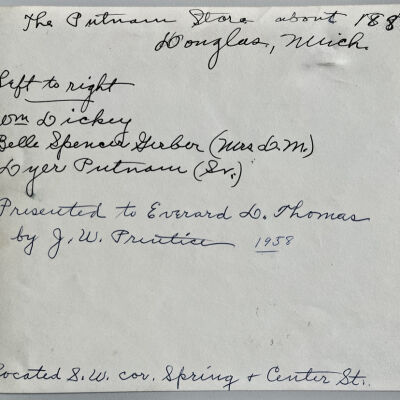 The Putnam Store about 188
Douglas, Mich.
Left to right
Tom Dickey
Belle Spencer Gerber (Mrs D.M.)
Dyer Putnam (Sr.)
Presented to Everard D. Thomas
by J. W. Prentice 1958
Located S.W. cor. Spring + Center St.